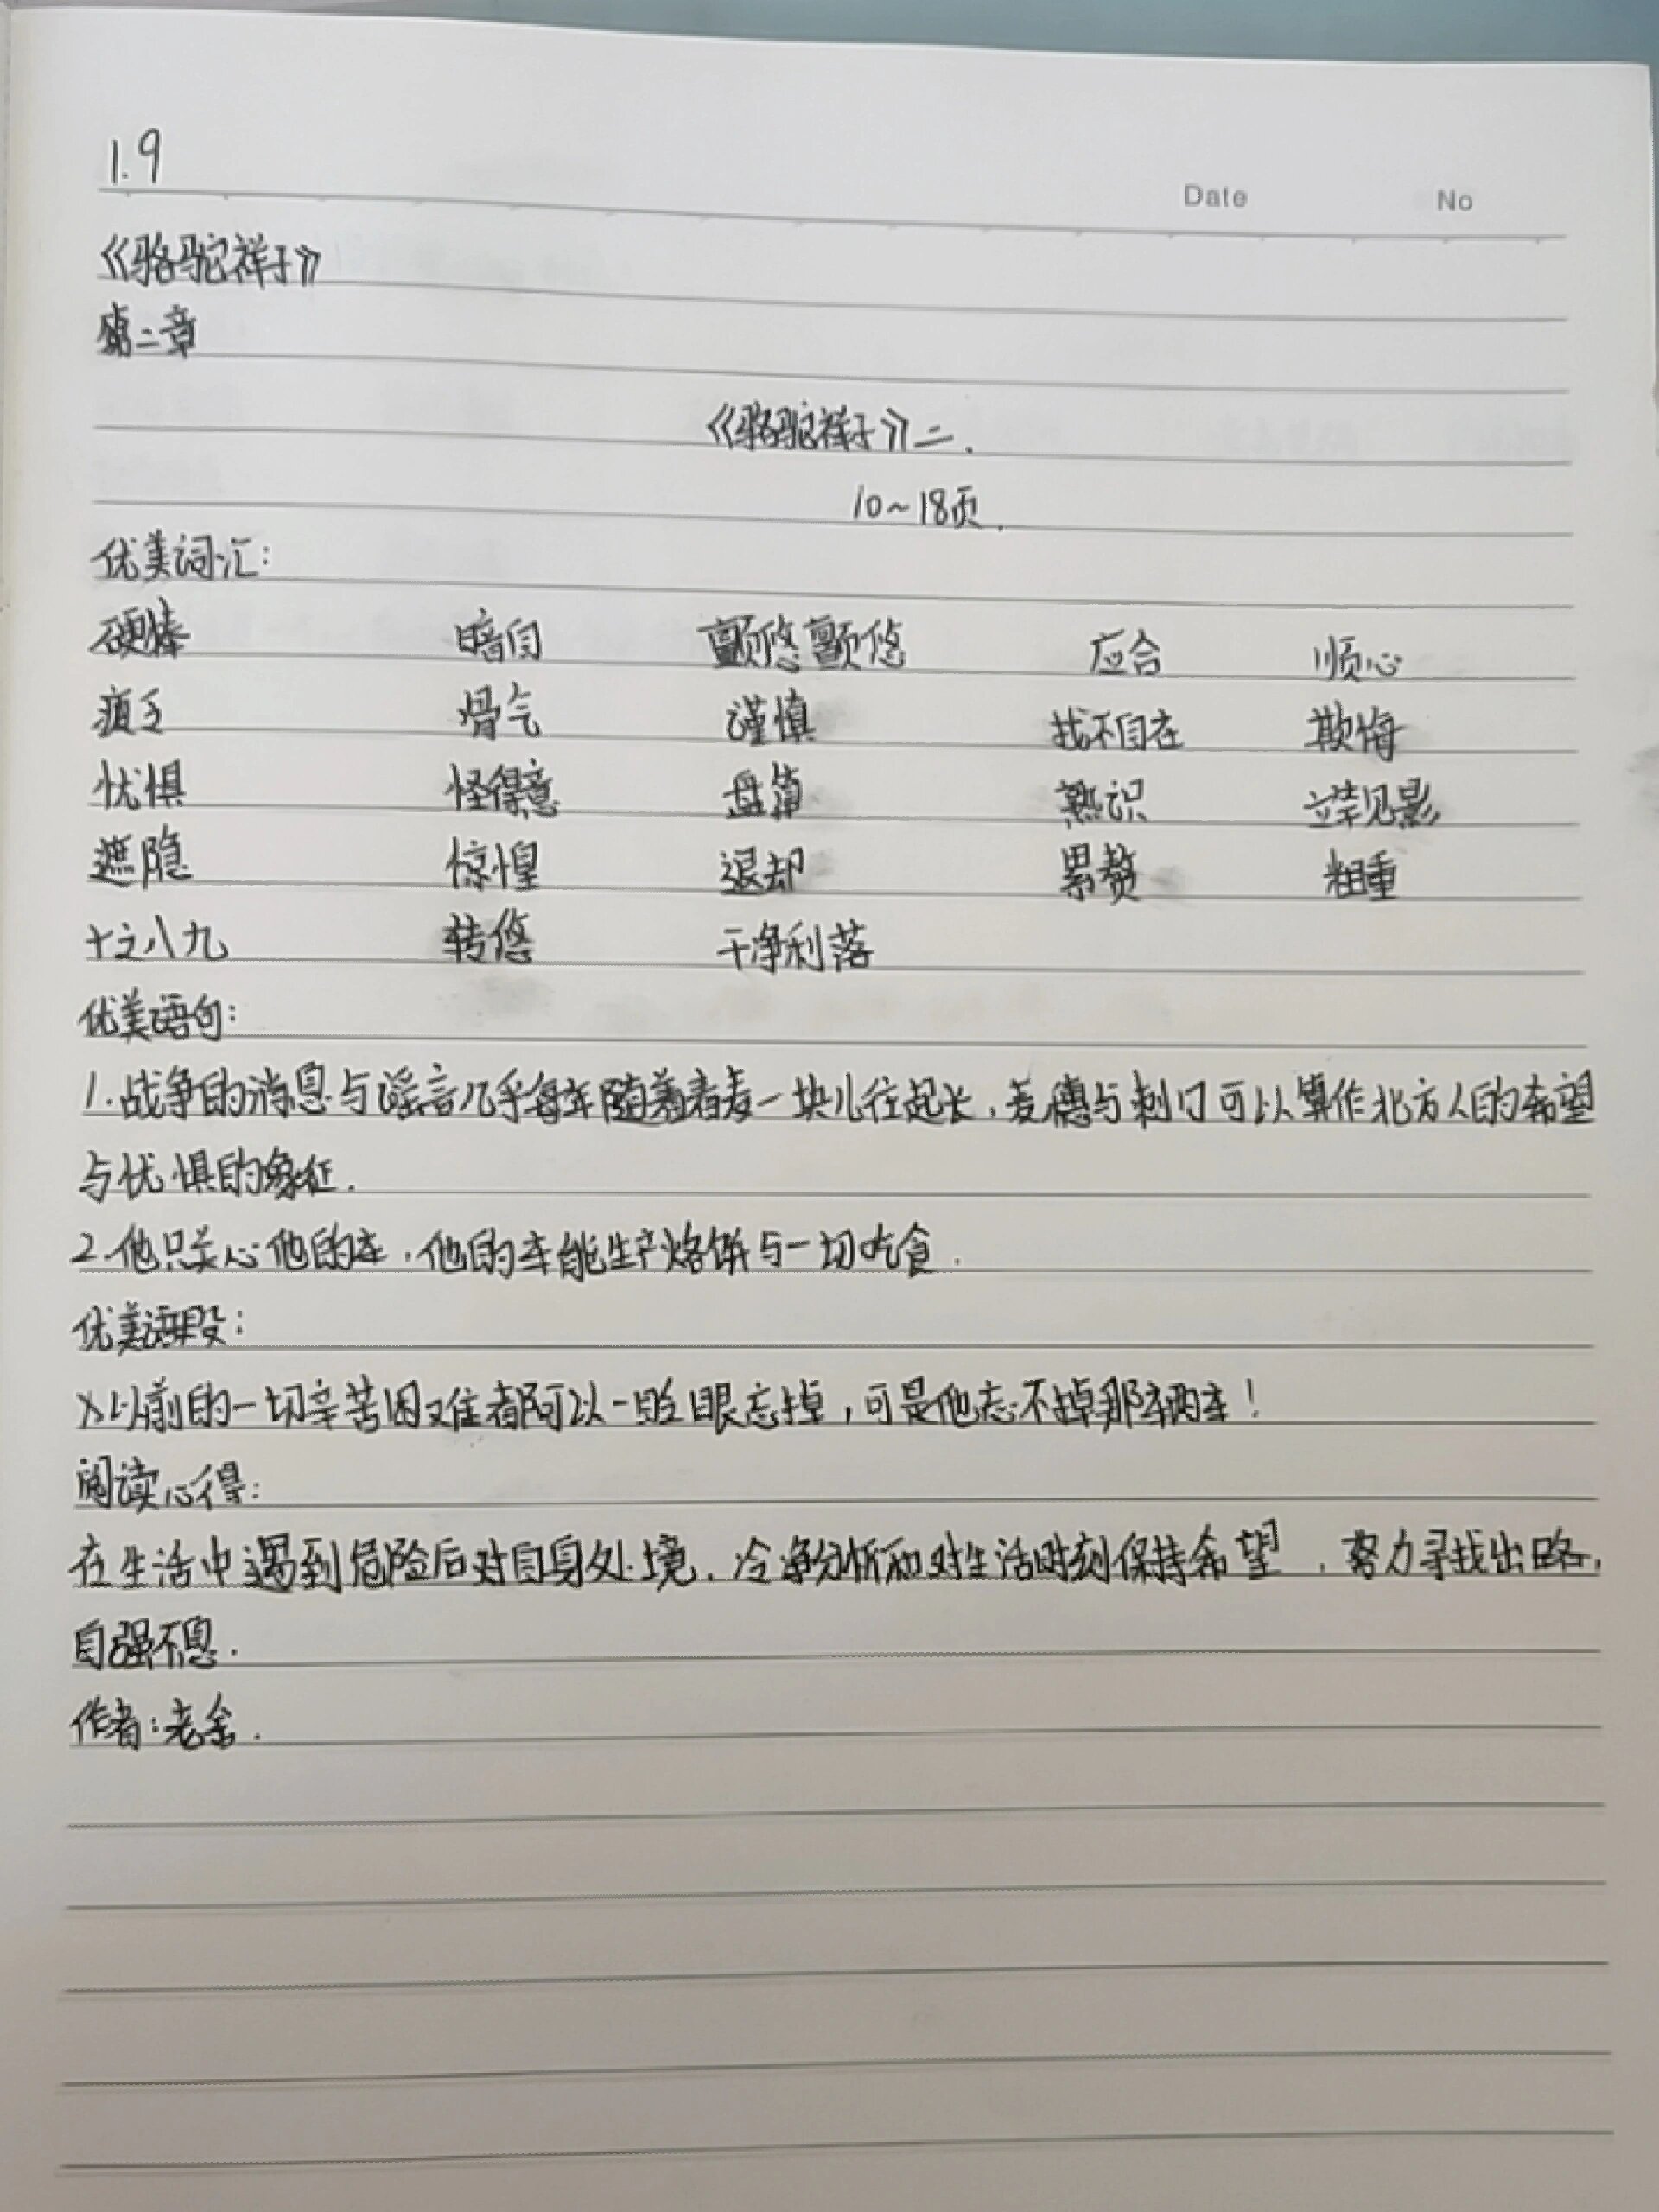 1.9
Date No
《骆驼祥子》
第二章
《骆驼祥子》二.
10~18页.
优美词汇:
硬棒 暗自 颤悠颤悠 应合 顺心
疲乏 骨气 谨慎 找不自在 欺侮
忧惧 怪得意 盘算 熟识 立竿见影
遮隐 惊惶 退却 累赘 粗重
十之八九 转悠 干净利落
优美语句:
1.战争的消息与谣言几乎每年随着春麦一块儿往起长,麦穗与刺刀可以算作北方人的希望
与忧惧的象征.
2.他只关心他的车,他的车能生产烙饼与一切吃食.
优美语段:
以前的一切辛苦困难都可以一眨眼忘掉,可是他忘不掉那辆车!
阅读心得:
在生活中遇到危险后对自身处境,冷净分析和对生活时刻保持希望,努力寻找出路,
自强不息.
作者:老舍.